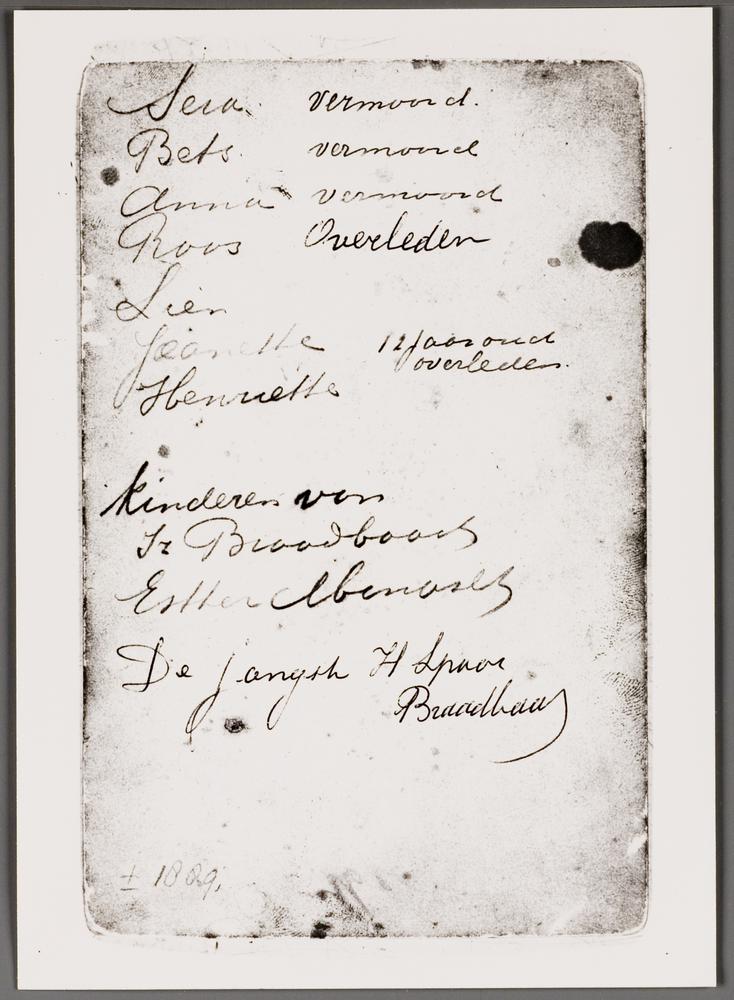 Sera. vermoord.
Bets. vermoord
Anna vermoord
Roos Overleden
Lien
Jeanette 12 jaar oud
overleden.
Henriette
kinderen van
Iz Braadbaart
Esther Abenaself
De Jongste H Spoor
Braadbaart
± 1889.